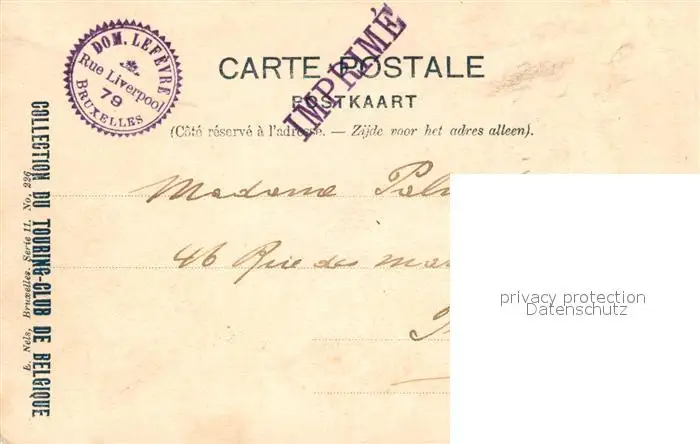 DOM. LEFÈVRE
Rue Liverpool
79
BRUXELLES
IMPRIMÉ
CARTE POSTALE
POSTKAART
(Côté réservé à l'adresse. — Zijde voor het adres alleen).
Madame
46 Rue des
COLLECTION DU TOURING-CLUB DE BELGIQUE
E. Nels, Bruxelles. Serie 11. No. 226
privacy protection
Datenschutz